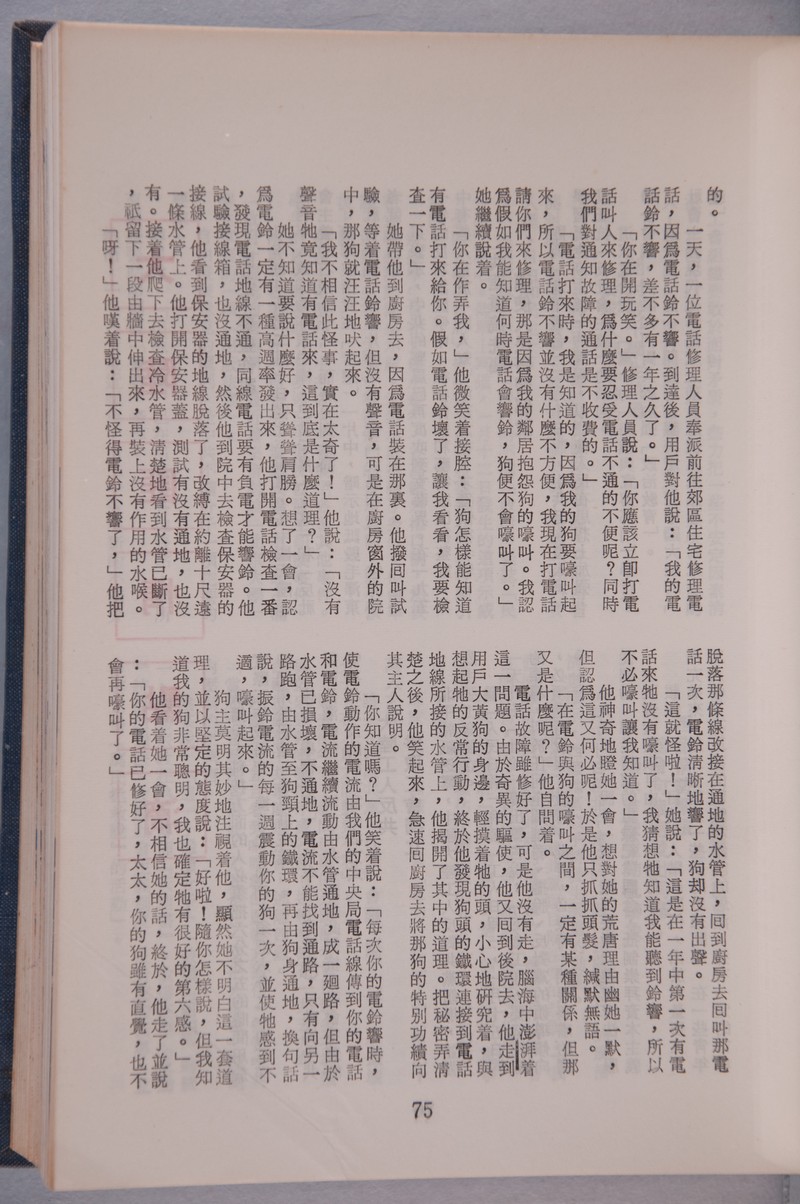 的。
一天，一位電話修理人員奉派前往郊區住宅修理電
話，因爲電話鈴不響。到達後，用戶對他說：「我的電
話鈴不響，差不多有一年之久了。」
「你在開玩笑。」修理人員說：「你應該立卽打電
話叫人來修理，爲什麼要忍受電話不通的不便呢？同時
我們對通知故障的通話是不收費的。」
「電話打來時，我是知道的，因爲我的狗要嚎叫起
來，所以電話鈴不響並沒有什麼不方便，我現在打電話
請你們來修理，那是因爲我的鄰居抱怨狗的嚎叫。我認
爲假如我能知道何時電話會響鈴，狗便不會嚎叫了。」
她繼續說着。
「你在作弄我，」他微笑着接腔：「狗怎樣能知道
有電話打來給你。假如電話鈴壞了，讓我看看，我要檢
查一下。」
她帶他到廚房去，因爲電話裝在那裏。他撥回叫試
驗，等着電話鈴響，但沒有聲音，可是在廚房窗外的院
中，那狗就汪汪地吠起來。
「我不相信此怪事，實在太奇了！」他說：「沒有
聲音牠竟知道有電話來，這到底是什麼道理？」
她不知道要說什麼好，只聳聳肩膀。想了一會，認
爲電鈴一定有一種高週率發出來，他打開電話檢查一番
，發現電話地線不通，同線電話要有負電才能響鈴。他
試驗接線箱，也沒通地，然後他到院中去檢查保安器的
接線，他看到保安器的地線脫落了，改縛在約離十尺遠
一條水管上。他打開保安器蓋，測試有沒有通地，也沒
有。接着他爬下去檢查冷水管，清楚地看到水管已斷了
，祇留下一段由牆中伸出來，再裝上沒有作用的水喉。
「呀！」他嘆着說：「不怪得電鈴不響了，」他把
脫落那條線改接在通地的水管上，回到廚房去回叫那電
話一次，電鈴清晰地響了，狗却沒有出聲。
「這就怪啦！」她說：「這是在一年中第一次有電
話來牠沒有嚎叫了，我猜想牠知道我能聽到鈴響，所以
不必嚎叫讓我知道。」
他神奇地瞪她一會，想對她的荒唐理由幽她一默，
但認爲這又何必呢！於是他只抓抓頭髮，緘默無語。
「在電鈴與狗的嚎叫之間，一定有某種關係，但那
又是什麼呢？」他自問着。
電話故障雖修好了，可是他沒有走，腦海中澎湃着
這一問題。由於奇異的驅使，他又回到後院去，他走到
用戶大黃狗的身邊，輕摸着牠的頭，小心地研究着，與
想起牠的反常行動，終於他發現狗頭的鐵環連接到電話
地線所接的水管上，他揭開了其中的道理。把秘密弄清
楚之後，他笑起來，急速回廚房去將那狗的特別功績向
其主人說明。
「你知道嗎？」他笑着說：「每次你的電鈴響時，
使電鈴動作的電流由我們的中央局電話線傳到你的電話
和電鈴，電流繼續流動由水管通地，成一廻路，但由於
水管已損壞，不通地，電流不能找到通路，只有向另一
路跑，由水管至狗頸上的鐵環，再由狗身通地，換句話
說，振鈴電流的每一週震動你的狗一次，並使牠感到不
適，嚎叫起來。」
狗主莫明其妙地注視着他，顯然她不明白這一套道
理，並以堅定的態度說：「好啦！隨你怎樣說，但我知
道我的狗非常聰明，我也確定牠有很好的第六感。」
他看着她一會，不相信她的話，終於，他走了並說
：「你的電話已修好了，太太，你的狗雖有直覺，也不
會再嚎叫了。」
75